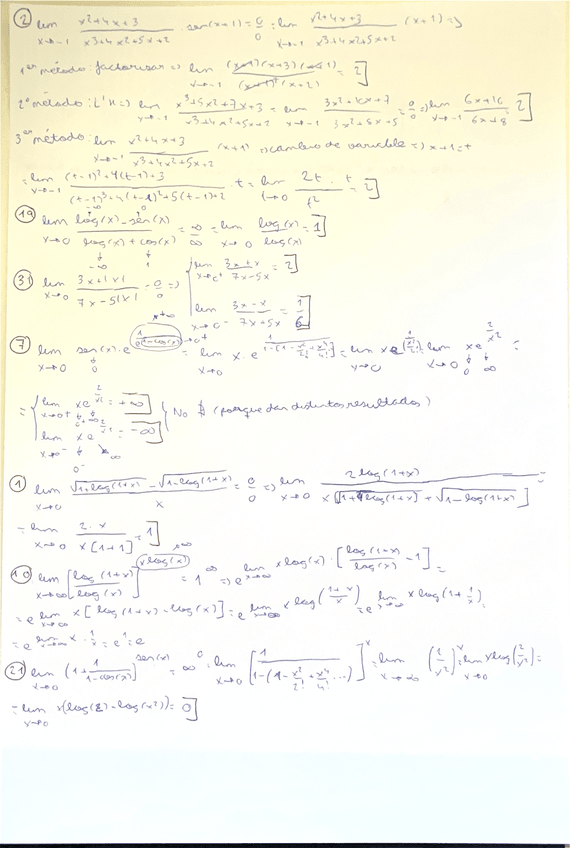 ② lim x→-1 (x²+4x+3)/(x³+4x²+5x+2) · sen(x+1) = 0/0 = lim x→-1 (x²+4x+3)/(x³+4x²+5x+2) (x+1) ⇒
1er método: factorizar ⇒ lim x→-1 (x+1)(x+3)(x+1)/((x+1)²(x+2)) = 2]
2º método: L'H ⇒ lim x→-1 (x³+5x²+7x+3)/(x³+4x²+5x+2) = lim x→-1 (3x²+10x+7)/(3x²+8x+5) = 0/0 ⇒ lim x→-1 (6x+10)/(6x+8) = 2]
3er método: lim x→-1 (x²+4x+3)/(x³+4x²+5x+2) (x+1) ⇒ cambio de variable ⇒ x+1=t
= lim ((t-1)²+4(t-1)+3)/((t-1)³+4(t-1)²+5(t-1)+2) · t = lim t→0 2t · t/t² = 2]
⑲ lim x→0 (log(x)-sen(x))/(log(x)+cos(x)) = ∞/∞ = lim x→0 log(x)/log(x) = 1]
㉛ lim x→0 (3x+|x|)/(7x-5|x|) = 0/0 ⇒ { lim x→0+ (3x+x)/(7x-5x) = 2]
lim x→0- (3x-x)/(7x+5x) = 1/6]
⑦ lim x→0 sen(x) · e^(1/(1-cos(x))) = lim x→0 x · e^(1/(1-(1-x²/2!+x⁴/4!))) = lim x→0 x e^(1/(x²/2!)) = lim x→0 x e^(2/x²) =
= { lim x→0+ x e^(2/x²) = +∞]
lim x→0- x e^(2/x²) = -∞] } No ∄ (porque dan distintos resultados)
① lim x→0 (√(1+log(1+x)) - √(1-log(1+x)))/x = 0/0 ⇒ lim x→0 2log(1+x)/(x[√(1+log(1+x)) + √(1-log(1+x))]) =
= lim x→0 2·x/(x[1+1]) = 1]
⑩ lim x→∞ [log(1+x)/log(x)]^(x log(x)) = 1^∞ ⇒ e^lim x→∞ x log(x) · [log(1+x)/log(x) - 1] =
= e^lim x→∞ x[log(1+x) - log(x)] = e^lim x→∞ x log((1+x)/x) = e^lim x→∞ x log(1+1/x) =
= e^lim x→∞ x · 1/x = e¹ = e
㉑ lim x→0 (1+1/(1-cos(x)))^sen(x) = ∞⁰ = lim x→0 [1/(1-(1-x²/2!+x⁴/4!...))]^x = lim x→∞ (2/x²)^x = lim x→0 x log(2/x²) =
= lim x→0 x(log(2)-log(x²)) = 0]